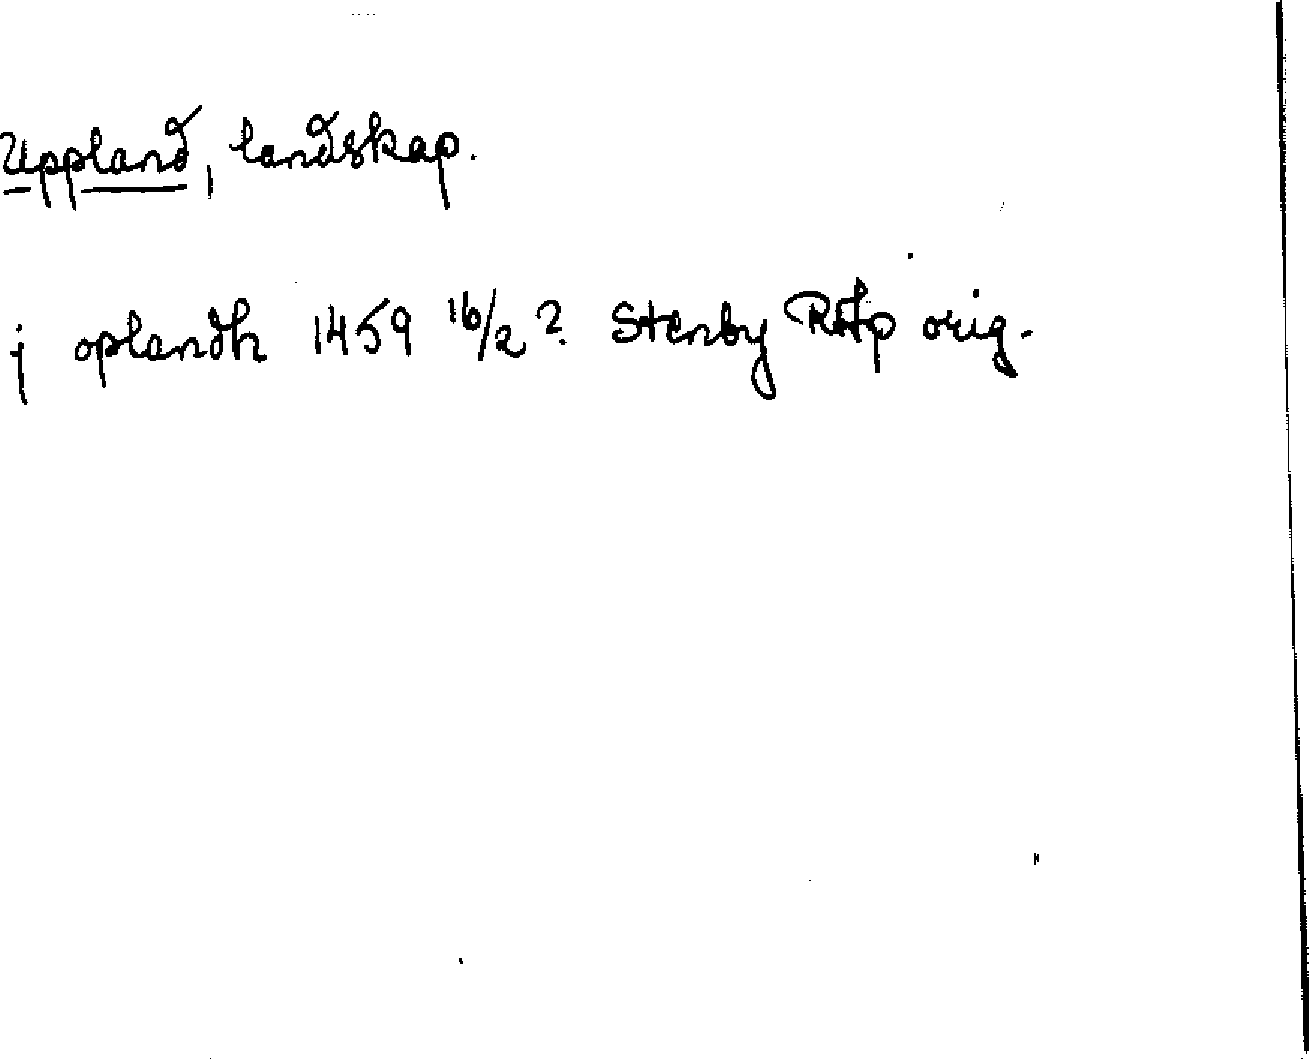 Uppland, landskap.
j oplandh 1459 16/2? Stenby RAp orig.